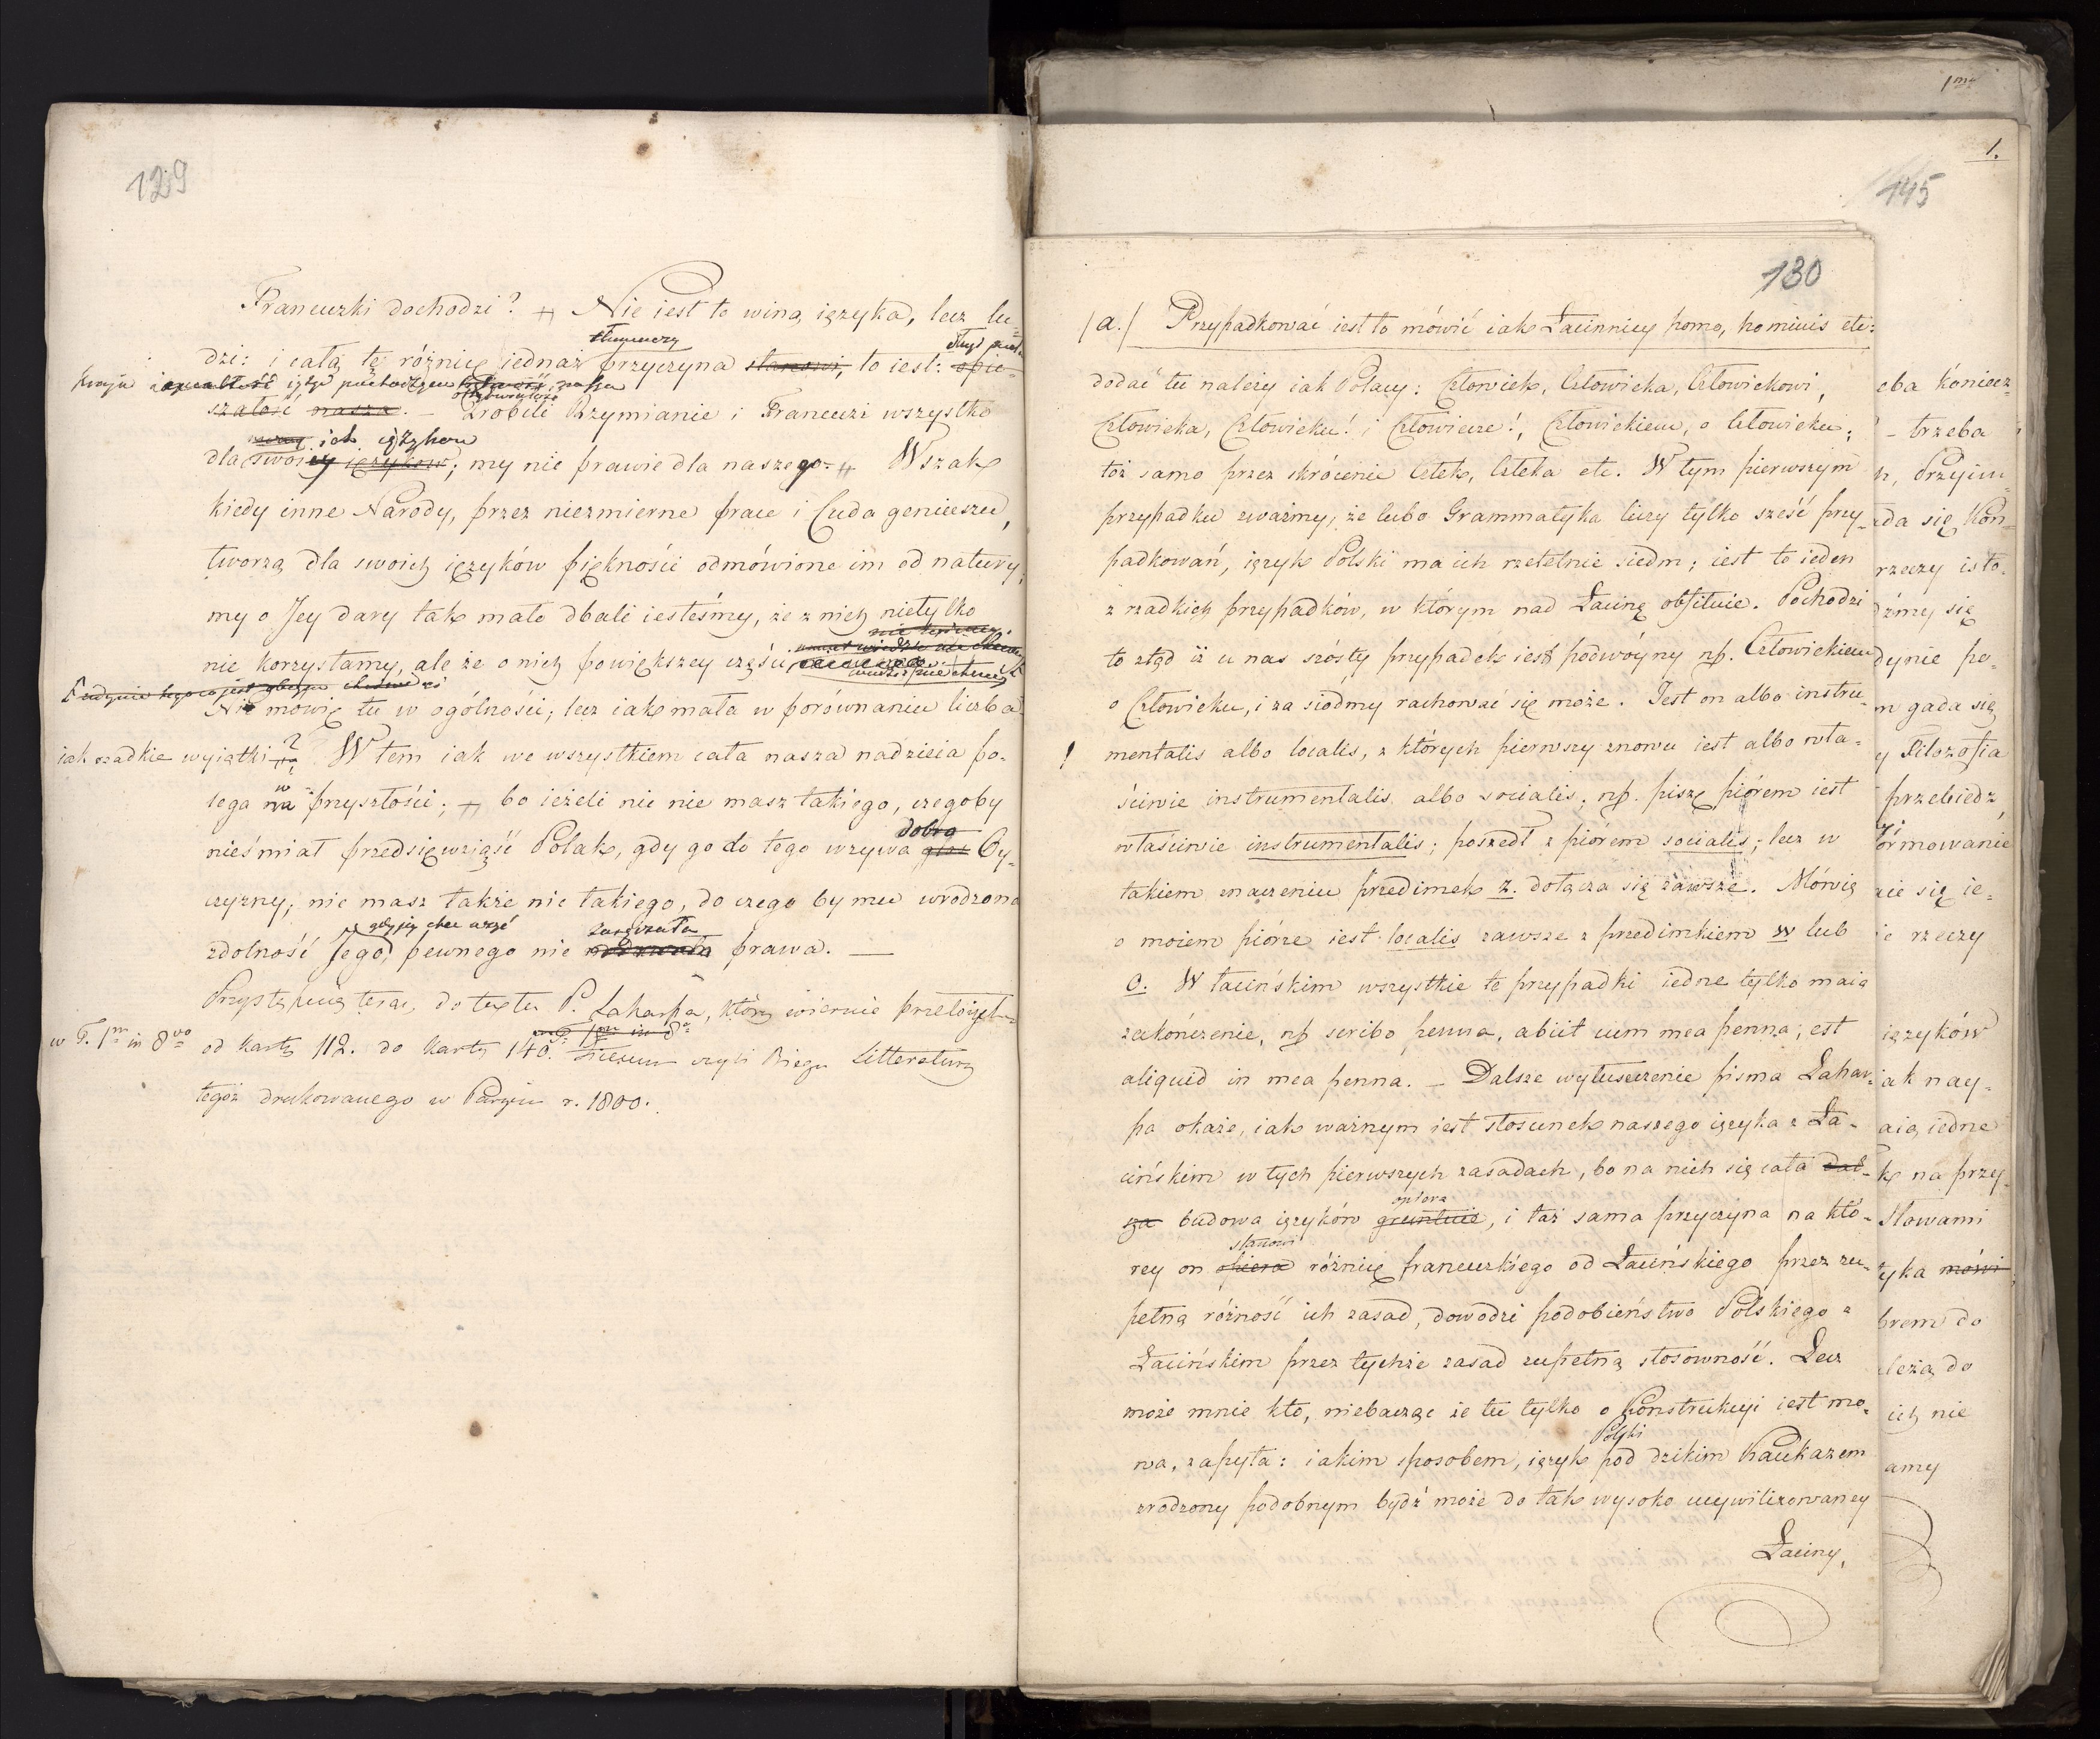 129
Francuzki dochodzi? Nie iest to winą ięzyka, lecz lu=
tłumaczy
dzi: i całą tę różnicę iednaż przyczyna stanowi, to iest: opie-
szałość nasza. – Zrobili Rzymianie i Francuzi wszystko
ich ięzykow
dla swoiey ięzykow; my nie prawie dla naszego. Wszak
kiedy inne Narody, przez niezmierne prace i Cuda geniuszu,
tworzą dla swoich ięzyków piękności odmówione im od natury,
my o Jey dary tak mało dbali iesteśmy, że z nich nietylko
nie korzystamy, ale że o nich powiększey części
Nie mówię tu w ogólności; lecz iak mała w porównaniu liczba
iak rzadkie wyiątki? W tem iak we wszystkiem cała nasza nadzieia po-
w
lega na przyszłości; bo ieżeli nic nie masz takiego, czegoby
dobro
nieśmiał przedsięwziąść Polak, gdy go do tego wzywa głos Oy-
czyzny; nie masz także nic takiego, do czego by mu wrodzona
gdy iey chce użyć zaręczała
zdolność Jego, pewnego nie prawa. —
Przystąpmy teraz, do textu P. Laharpa, który wiernie przełożył
w T. 1m in 8vo od karty 112. do karty 140. czyli Biegu Litteratury
tegoż drukowanego w Paryżu r. 1800.
1mo
1.
145
130
/a./ Przypadkować iest to mówić iak Łacinnicy homo, hominis etc:
dodać tu należy iak Polacy: Człowiek, Człowieka, Człowiekowi,
Człowieka, Człowieku! i Człowiecze!, Człowiekiem, o Człowieku;
toż samo przez skrócenie Człek, Człeka etc. W tym pierwszym
przypadku zważmy, że lubo Grammatyka liczy tylko sześć przy-
padkowań, ięzyk Polski ma ich rzetelnie siedm; iest to ieden
z rzadkich przypadków, w którym nad Łacinę obfituie. Pochodzi
to ztąd iż u nas szósty przypadek iest podwóyny np. Człowiekiem
o Człowieku, i za siódmy rachować się może. Iest on albo instru-
mentalis albo localis, z których pierwszy znowu iest albo wła-
ściwie instrumentalis albo socialis; np. piszę piórem iest
właściwie instrumentalis; poszedł z piórem socialis; lecz w
takiem znaczeniu przedimek z. dołącza się zawsze. Mówię
o moiem piórze iest localis zawsze z przedimkiem w lub
o. W łacińskim wszystkie te przypadki iedne tylko maią
zakończenie, np scribo penna, abiit cum mea penna, est
aliquid in mea penna. – Dalsze wyłuszczenie pisma Lahar-
pa okaże, iak ważnym iest stosunek naszego ięzyka z Ła-
cińskim w tych pierwszych zasadach, bo na nich się cała dal-
opiera
sza budowa ięzyków gruntuie, i taż sama przyczyna na któ-
stanowi
rey on opiera różnicę francuzkiego od Łacińskiego przez zu-
pełną różność ich zasad, dowodzi podobieństwo Polskiego z
Łacińskim przez tychże zasad zupełną stosowność. Lecz
może mnie kto, niebacząc że tu tylko o Konstrukcyi iest mo-
Polski
wa, zapyta: iakim sposobem, ięzyk pod dzikim Kaukazem
zrodzony podobnym bydź może do tak wysoko ucywilizowaney
Łaciny,
eba koniecz
– trzeba
, Przyim
da się Kon-
rzeczy isto-
źmy się
dynie po-
m gada się
y Filozofia
przebiedz
formowanie
ie się ie-
ie rzeczy
ięzyków
iak nay-
aią iedne
k na przy-
słowami
tyka mówi
brem do
leżą do
ich nie
amy